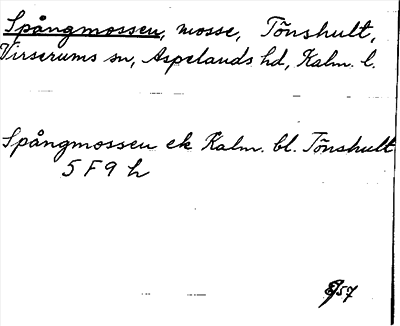 Spångmossen, mosse, Tönshult,
Virserums sn, Aspelands hd, Kalm. l.
Spångmossen ek Kalm. bl. Tönshult
5 F 9 h
57